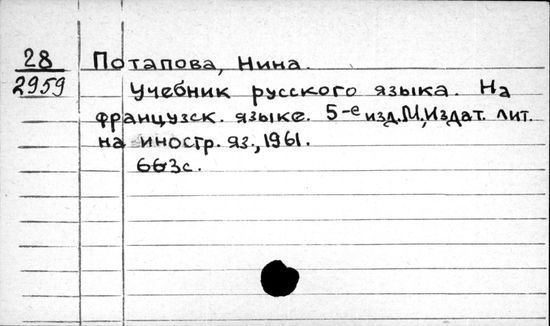 28
2959
Потапова, Нина.
Учебник русского языка. На
французск. языке. 5-е изд. М., Издат. лит.
на иностр. яз., 1961.
663с.